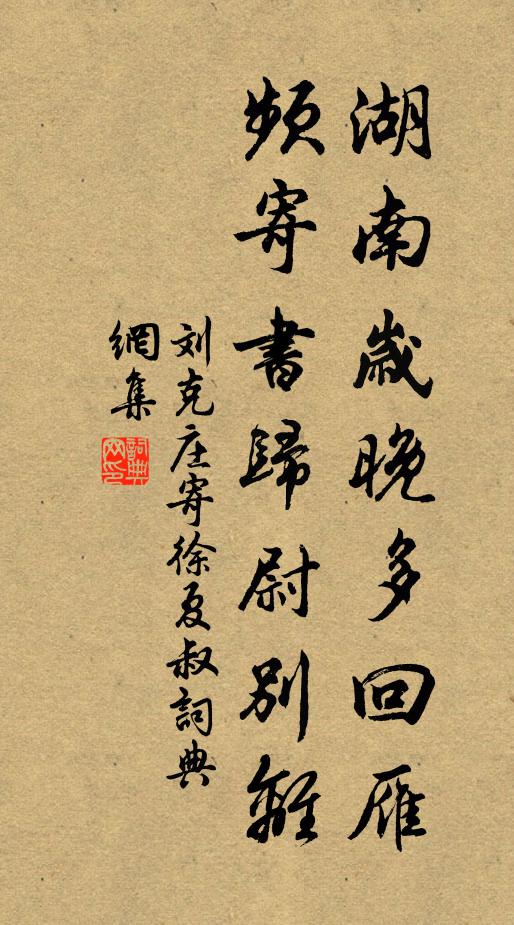 湖南歲晚多回雁
頻寄書歸尉別離
刘克庄寄徐夏叔詞典
網集
詞典
网印